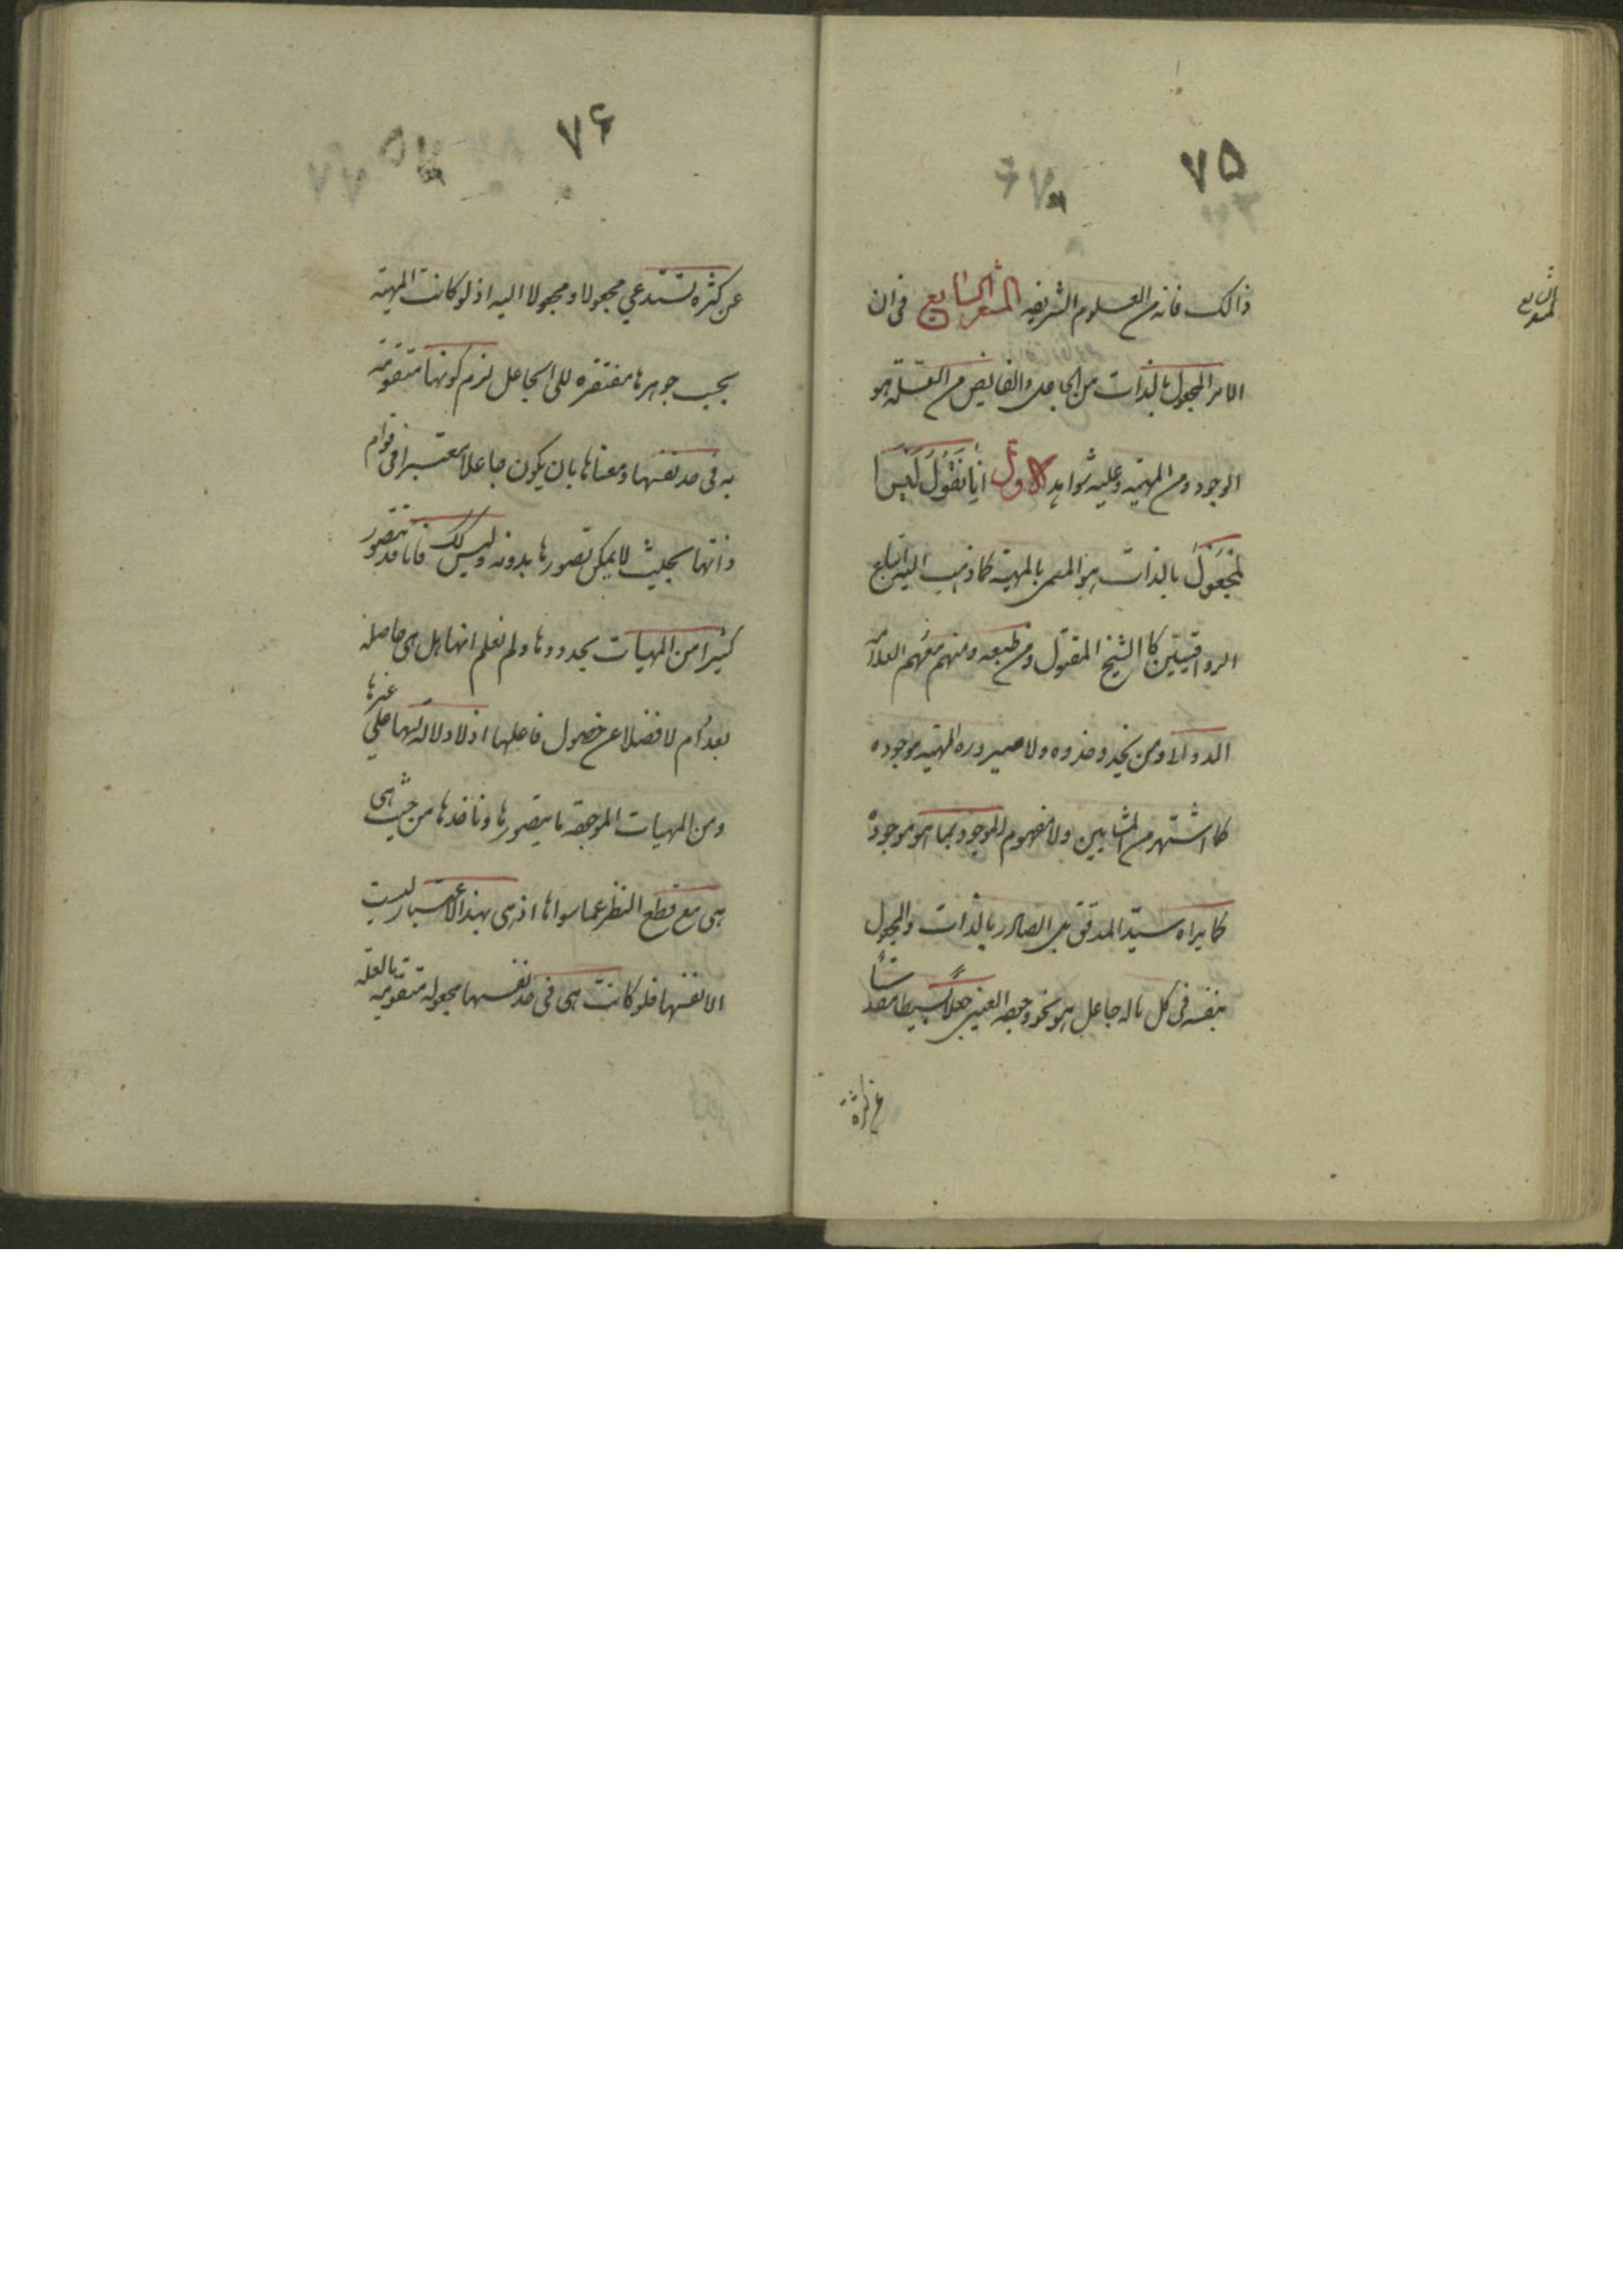 ٧٥
المشعر السابع
ذالک فانه من العلوم الشریفه المشعر السابع فی ان
الامر المجعول بالذات من الجاعل والفایض من العلة هو
الوجود دون المهیه وعلیه شواهد الاول انا نقول لیس ا
لمجعول بالذات هو المسمی بالمهیة کما ذهب الیه اتباع
الرواقیین کا الشیخ المقتول ومن تبعه ومنهم العلامه
الدوانی ومن یحذو حذوه ولا صیروره المهیه موجوده
کما اشتهر من المشایین ولا مفهوم الموجود بما هو موجود
کما یراه سید المدقق بل الصادر بالذات والمجعول
بنفسه فی کل ماله جاعل هو نحو وجوده العینی جعلاً بسیطا مقدساً
عن کثرة
٧۶
عن کثره تستدعی مجعولا ومجعولا الیه اذ لو کانت المهیه
بحسب جوهرها مفتقره الی الجاعل لزم کونها متقومة
به فی حد نفسها ومعناها بان یکون جاعلا معتبرا فی قوام
ذاتها بحیث لا یمکن تصورها بدونه ولیس کک فانا قد نتصور
کثیرا من المهیات بحدودها ولم نعلم انها هل هی حاصله
بعد ام لا فضلا عن حصول فاعلها اذ لا دلاله لها علی غیرها
ومن المهیات الموجوده ما نتصورها وناخذها من حیث هی
هی مع قطع النظر عما سواها اذ هی بهذا الاعتبار لیست
الا نفسها فلو کانت هی فی حد نفسها مجعوله متقومه بالعله